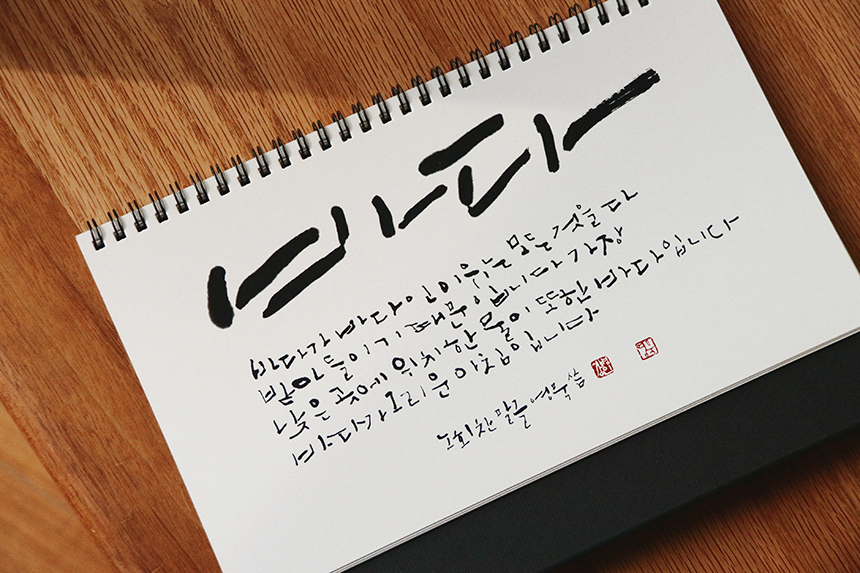 바다
바다가 바다인 이유는 모든 것을 다
받아들이기 때문입니다 가장
낮은 곳에 위치한 물이 또한 바다입니다
바다가 그리운 아침입니다
노회찬 말글 영묵 씀